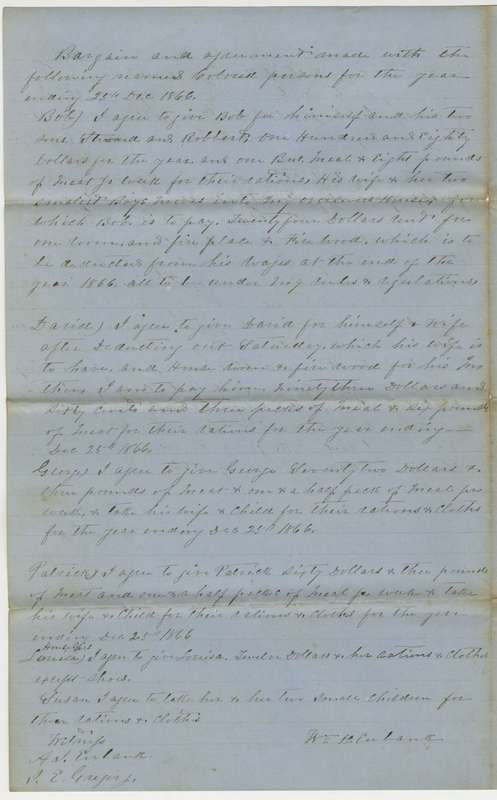 Bargain and agreement made with the
following named Colored persons for the year
ending 25th Dec 1866.
Bob) I agree to give Bob for himself and his two
sons, and Robbert, One Hundred and Eighty
Dollars for the year and one Bus. Meal & Eight pounds
of Meat pr week for their rations. His wife & her two
smallest Boys moves into my House for
which Bob is to pay Twenty four Dollars rent for
one room and fire place & Fire wood, which is to
be deducted from his Wages at the end of the
year 1866. all to be under my rules & regulations
David) I agree to give David for himself & Wife
after Deducting out Saturday, which his wife is
to have, and House room & fire wood for his
them, I am to pay him Ninety three Dollars and
Sixty cents and three pecks of meal & six pounds
of meat for their rations for the year ending
Dec 25th 1866.
George) I agree to give George Seventy two Dollars &
three pounds of Meat & one & a half peck of Meal per
week, & take his wife & Child for their rations & Cloths
for the year ending Dec 25th 1866.
Patrick) I agree to give Patrick Sixty Dollars & three pounds
of Meat and one & a half pecks of meal pr week & take
his wife & Child for their rations & Cloths for the year
ending Dec 25th 1866
Louisa) I agree to give Louisa Twelve Dollars & her rations & Clothes
except shoes.
Susan I agree to take her & her two small Children for
their rations & Cloths
Witness
Wm P. Eubank
Eubank
J. E.